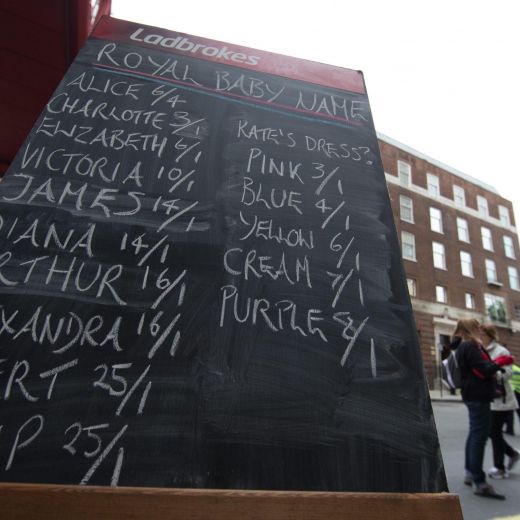 Ladbrokes
ROYAL BABY NAME
ALICE 6/4
CHARLOTTE 3/1
ELIZABETH 6/1
VICTORIA 10/1
JAMES 14/1
IANA 14/1
RTHUR 16/1
XANDRA 16/1
ERT 25/1
P 25/1
KATE'S DRESS?
PINK 3/1
BLUE 4/1
YELLOW 6/1
CREAM 7/1
PURPLE 8/1